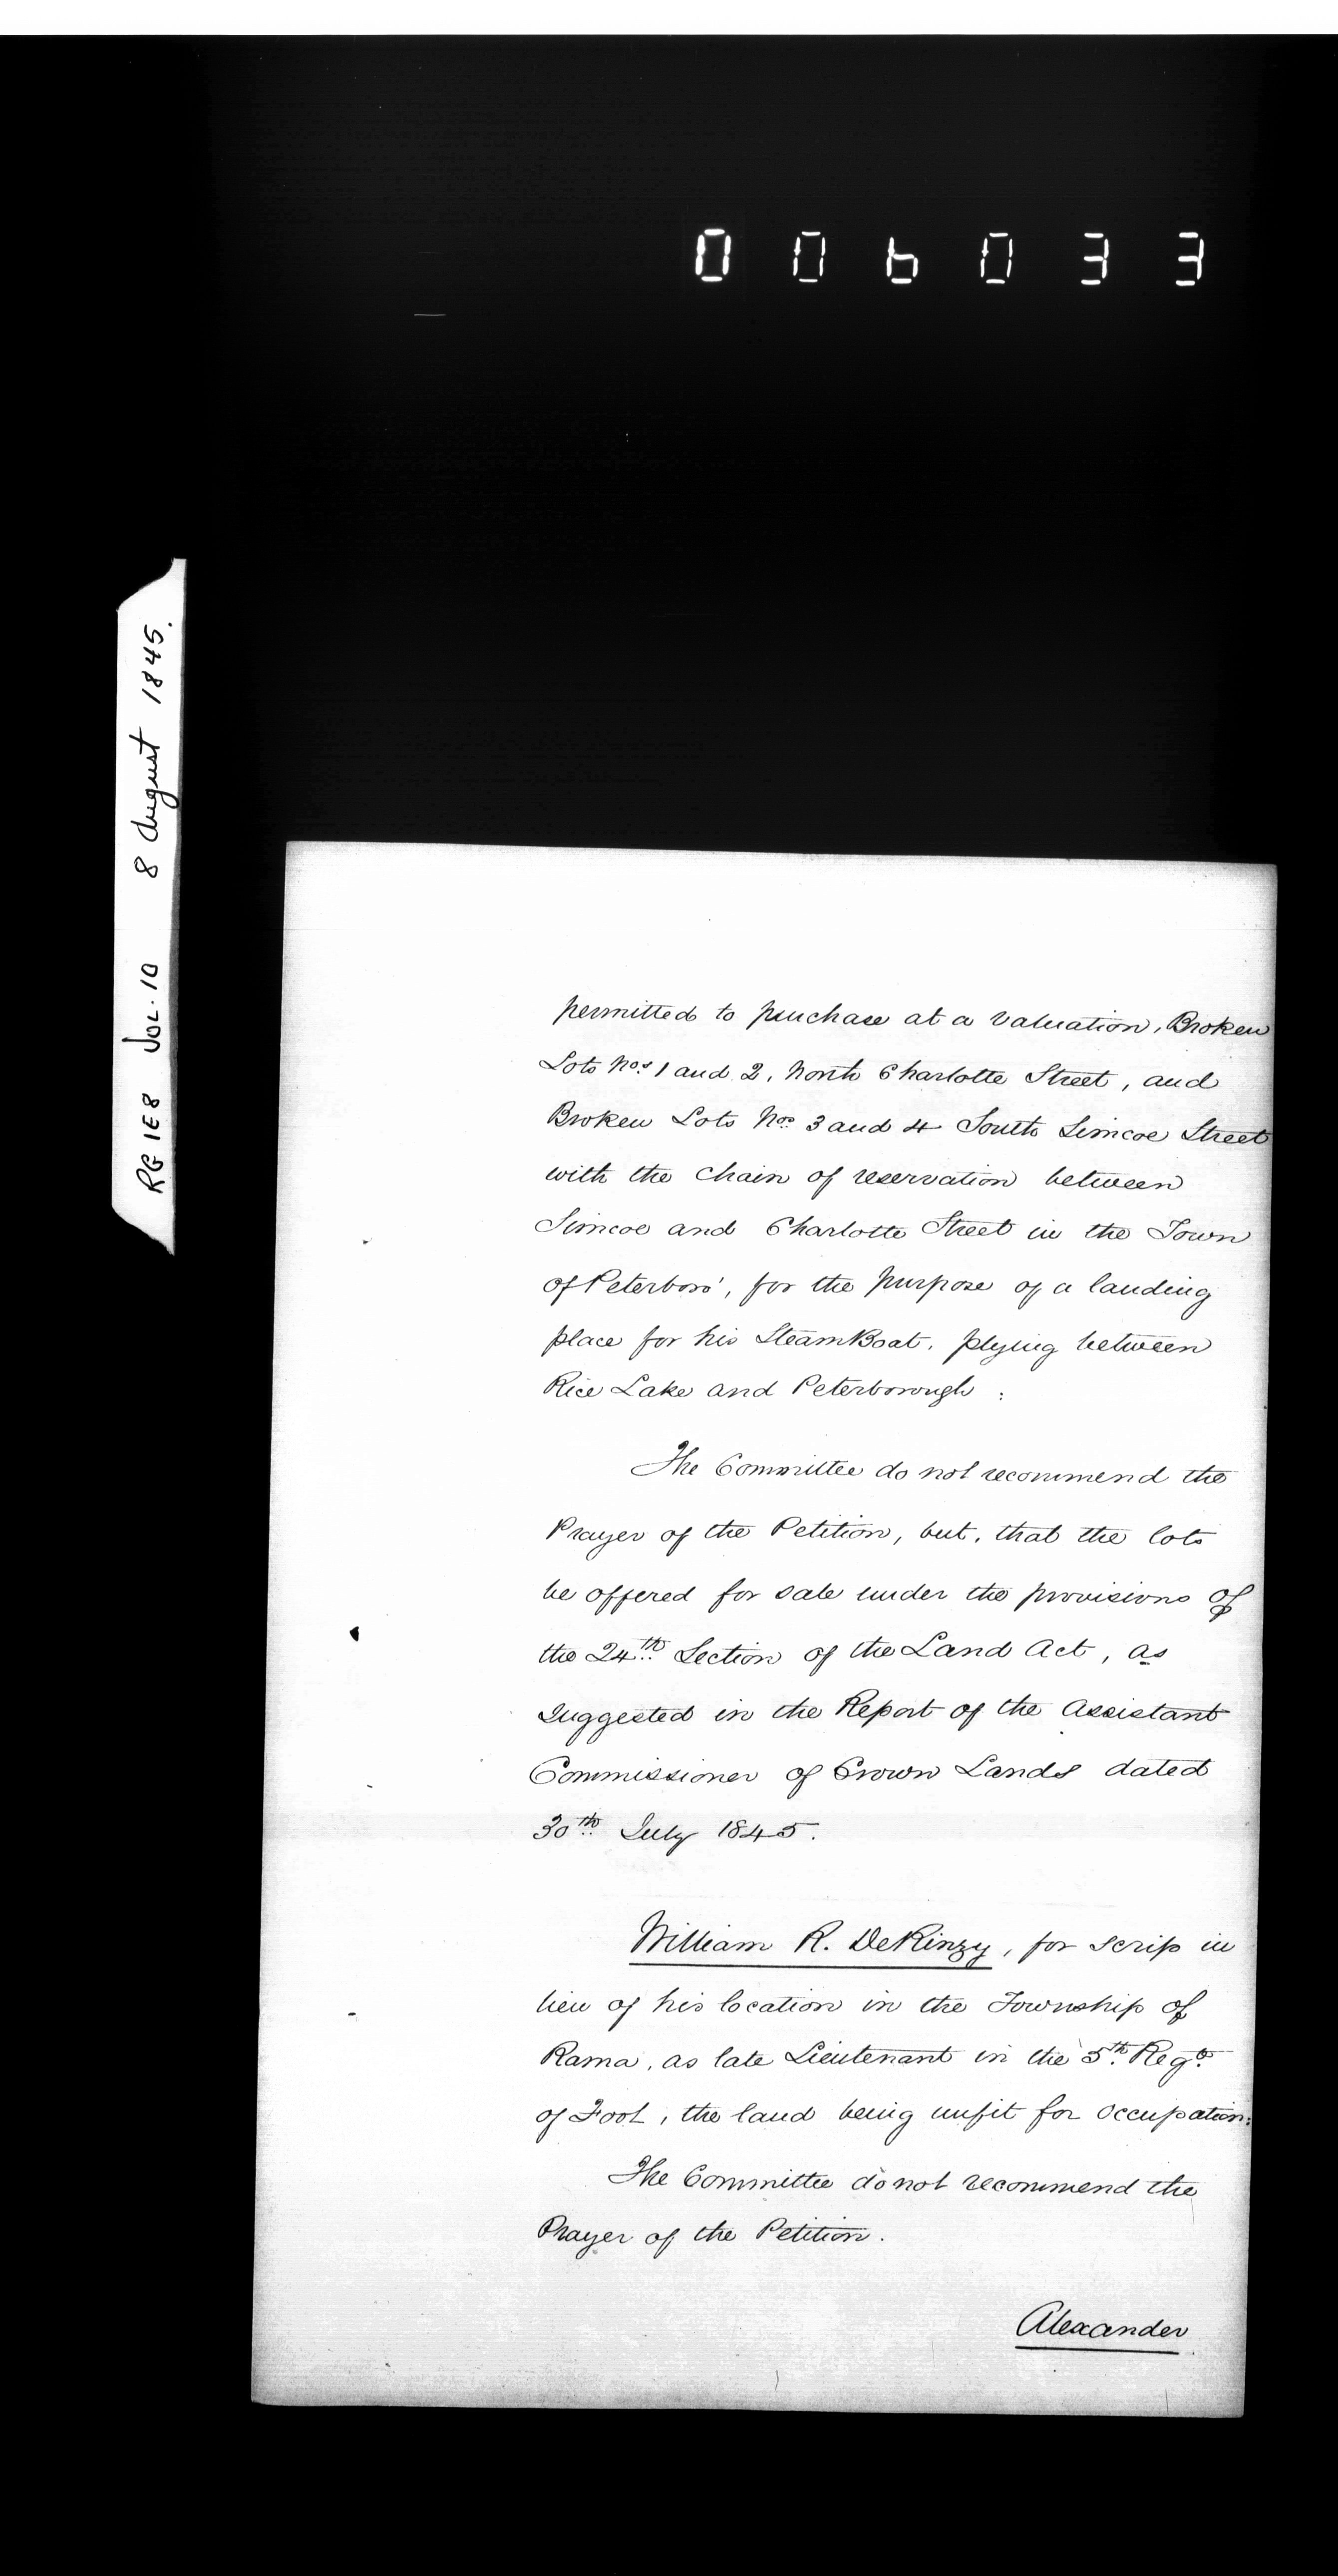 006033
RG 1E8 VOL. 10 8 August 1845.
permitted to purchase at a valuation, Broken
Lots Nos. 1 and 2, North Charlotte Street, and
Broken Lots Nos. 3 and 4 South Simcoe Street
with the chain of reservation between
Simcoe and Charlotte Street in the Town
of Peterboro', for the purpose of a landing
place for his SteamBoat, plying between
Rice Lake and Peterborough :
The Committee do not recommend the
Prayer of the Petition, but, that the lots
be offered for sale under the provisions of
the 24th Section of the Land Act, as
suggested in the Report of the Assistant
Commissioner of Crown Lands dated
30th July 1845.
William R. DeKinzy, for scrip in
lieu of his location in the Township of
Rama, as late Lieutenant in the 5th Regt.
of Foot, the land being unfit for occupation:
The Committee do not recommend the
Prayer of the Petition.
Alexander